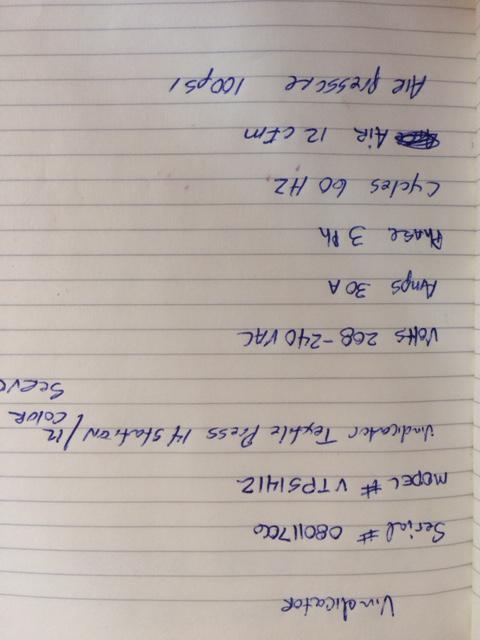 Vindicator
Serial #
MODEL # VTPS1412
Vindicator Textile Press 14 station / 12 COLOR
Volts 208-240 VAC
Amps 30 A
Phase 3 Ph
Cycles 60 HZ
AiR 12 CFM
AiR pressure 100 psi